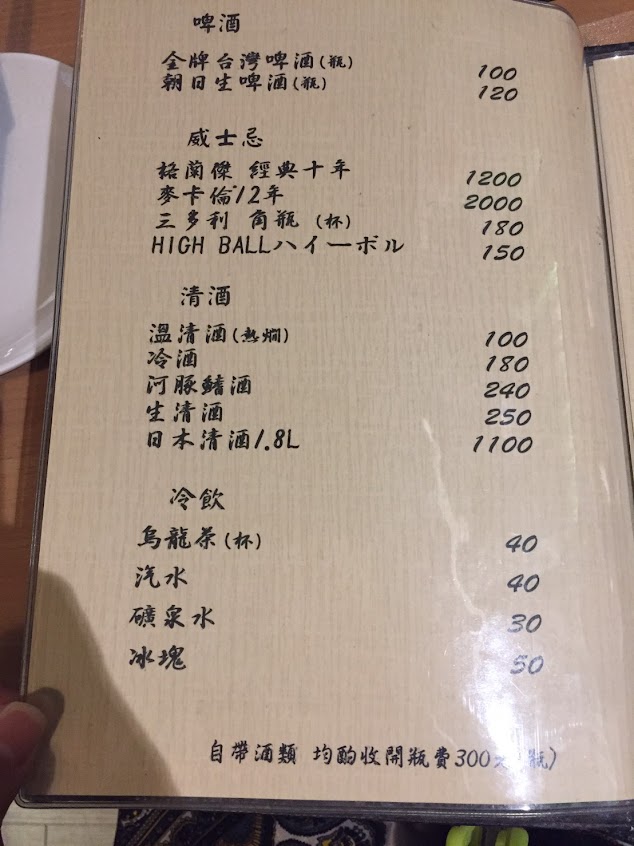 啤酒
金牌台灣啤酒(瓶) 100
朝日生啤酒(瓶) 120
威士忌
格蘭傑 經典十年 1200
麥卡倫12年 2000
三多利 角瓶 (杯) 180
HIGH BALLハイーボル 150
清酒
溫清酒(熱燗) 100
冷酒 180
河豚鰭酒 240
生清酒 250
日本清酒1.8L 1100
冷飲
烏龍茶(杯) 40
汽水 40
礦泉水 30
冰塊 50
自帶酒類 均酌收開瓶費300 瓶)